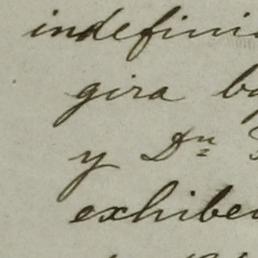 indefini
gira ba
y Dn
exhibe